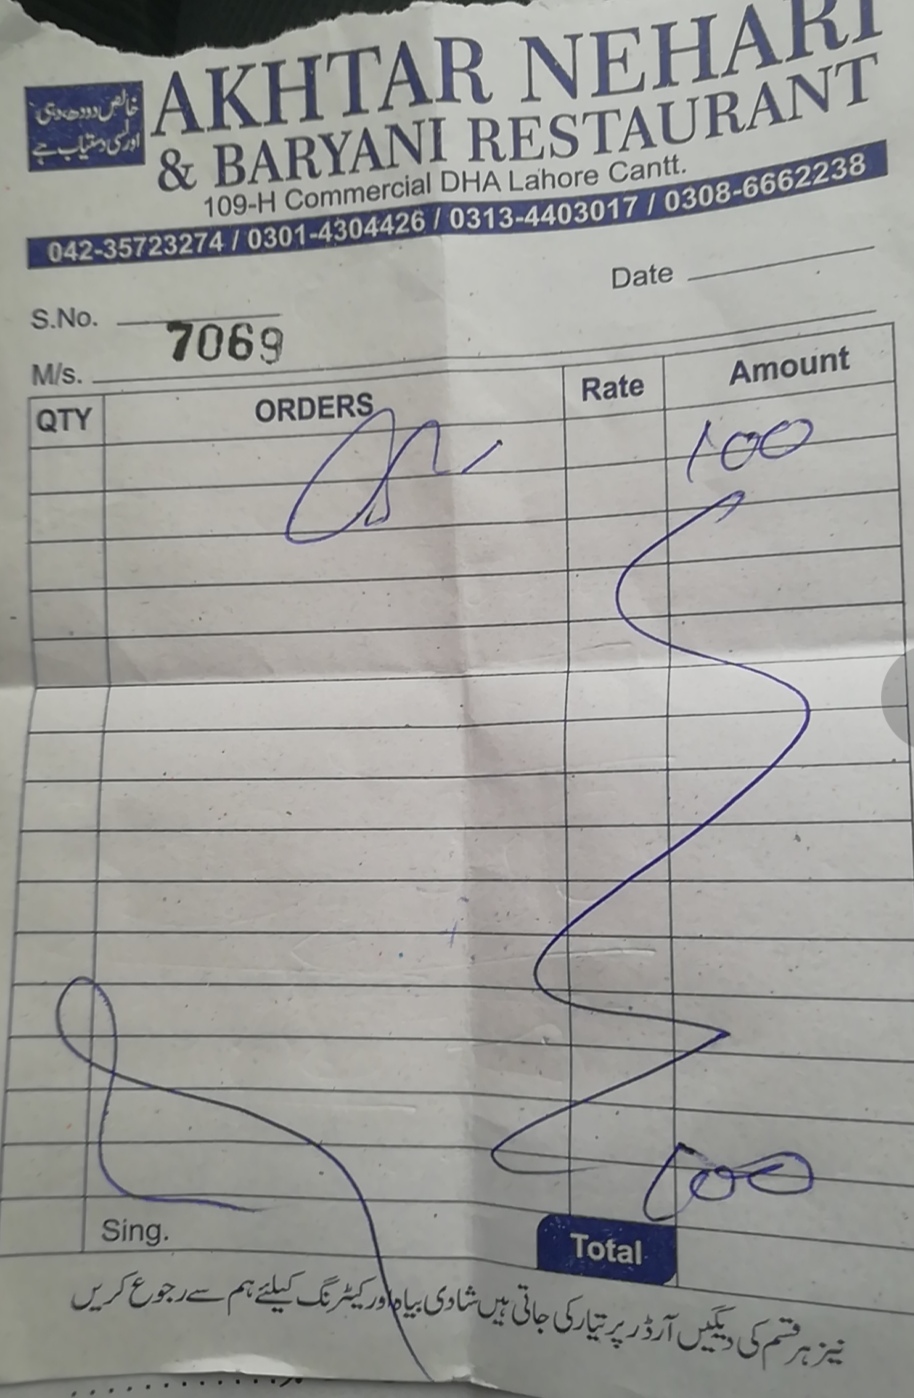 خالص دودھ، دہی
اور لسی دستیاب ہے
AKHTAR NEHARI
& BARYANI RESTAURANT
109-H Commercial DHA Lahore Cantt.
042-35723274 / 0301-4304426 / 0313-4403017 / 0308-6662238
Date
S.No. 7069
M/s.
QTY ORDERS Rate Amount
100
100
Sing. Total
نیز ہر قسم کی دیگیں آرڈر پر تیار کی جاتی ہیں شادی بیاہ اور کیٹرنگ کیلئے ہم سے رجوع کریں